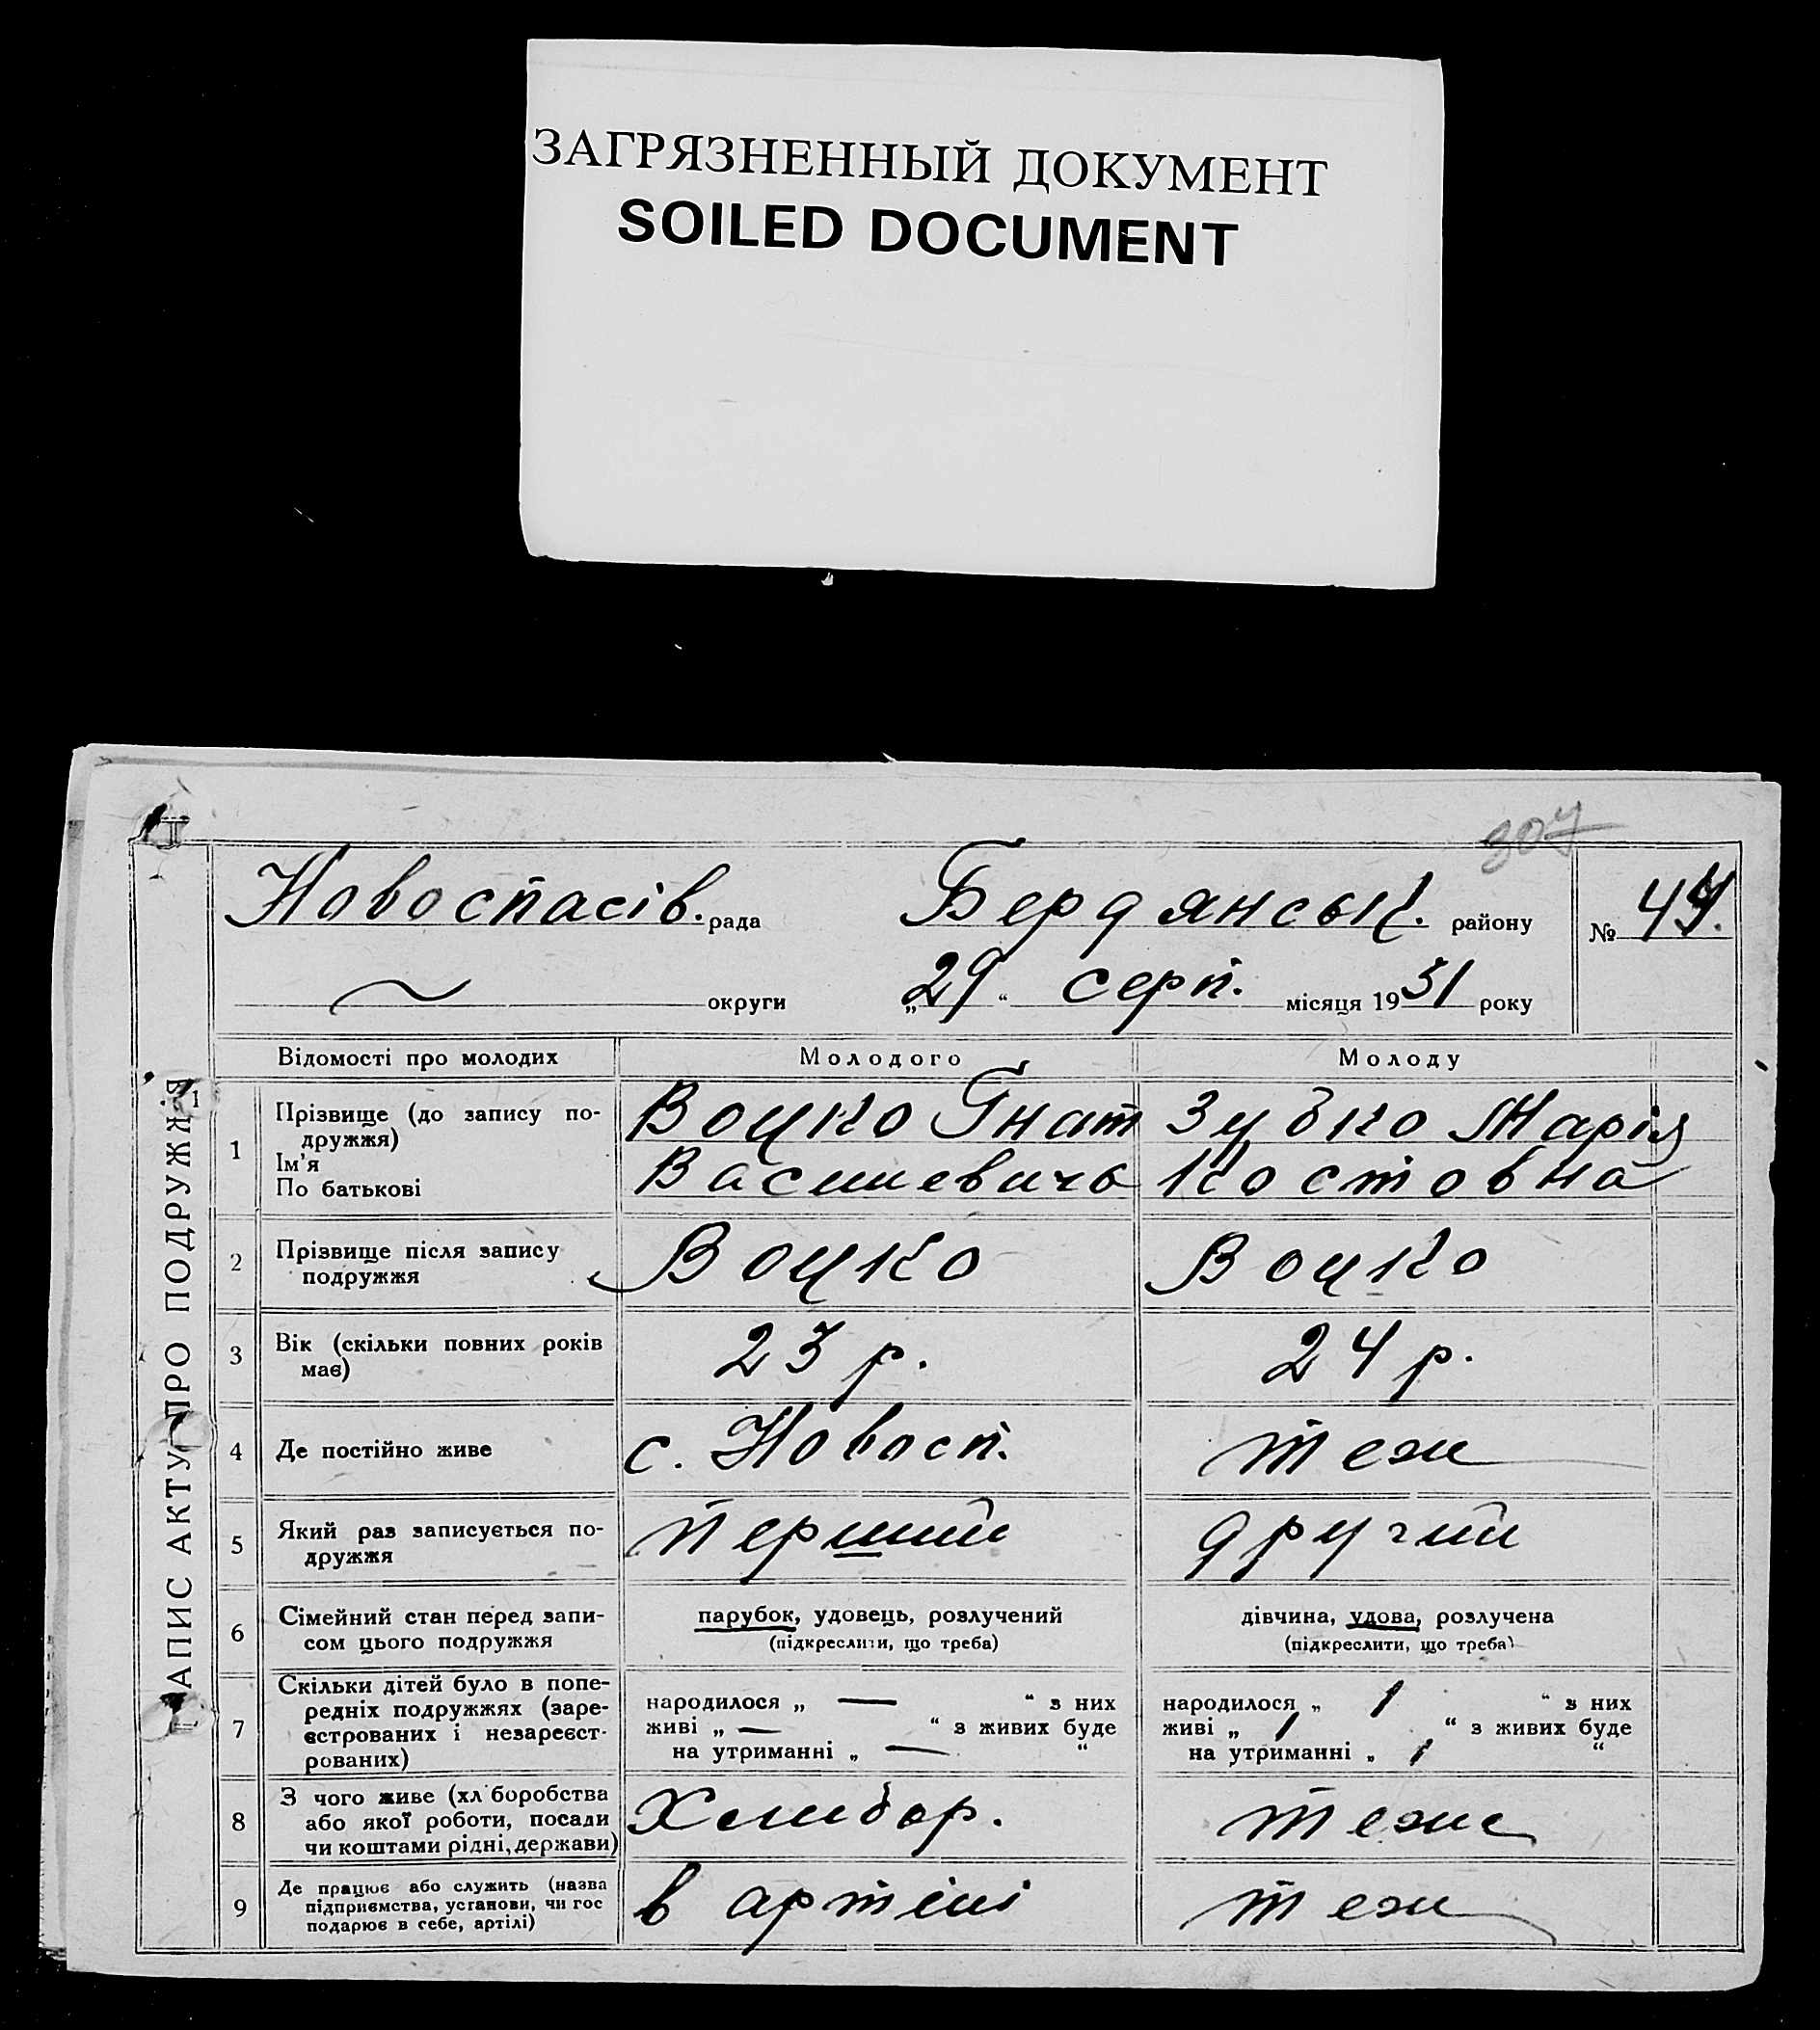 ЗАГРЯЗНЕННЫЙ ДОКУМЕНТ
SOILED DOCUMENT
307
Новоспасів. рада Бердянськ. району № 47.
округи „29“ серп. місяця 1931 року
ЗАПИС АКТУ ПРО ПОДРУЖЖЯ
Відомості про молодих Молодого Молоду
1 Прізвище (до запису по-
дружжя)
Ім'я
По батькові
Воцко Гнат
Васильевичь
Зубко Марія
Костовна
2 Прізвище після запису
подружжя
Воцко Воцко
3 Вік (скільки повних років
має)
23 р. 24 р.
4 Де постійно живе с. Новосп. теж
5 Який раз записується по-
дружжя
перший другий
6 Сімейний стан перед запи-
сом цього подружжя
парубок, удовець, розлучений
(підкреслити, що треба)
дівчина, удова, розлучена
(підкреслити, що треба)
7 Скільки дітей було в попе-
редніх подружжях (заре-
єстрованих і незареєст-
рованих)
народилося „ — “ з них
живі „ — “ з живих буде
на утриманні „ — “
народилося „ 1 “ з них
живі „ 1 “ з живих буде
на утриманні „ 1 “
8 З чого живе (хл боробства
або якої роботи, посади
чи коштами рідні, держави)
Хлибор. теже
9 Де працює або служить (назва
підприємства, установи, чи гос
подарює в себе, артілі)
в артілі теж